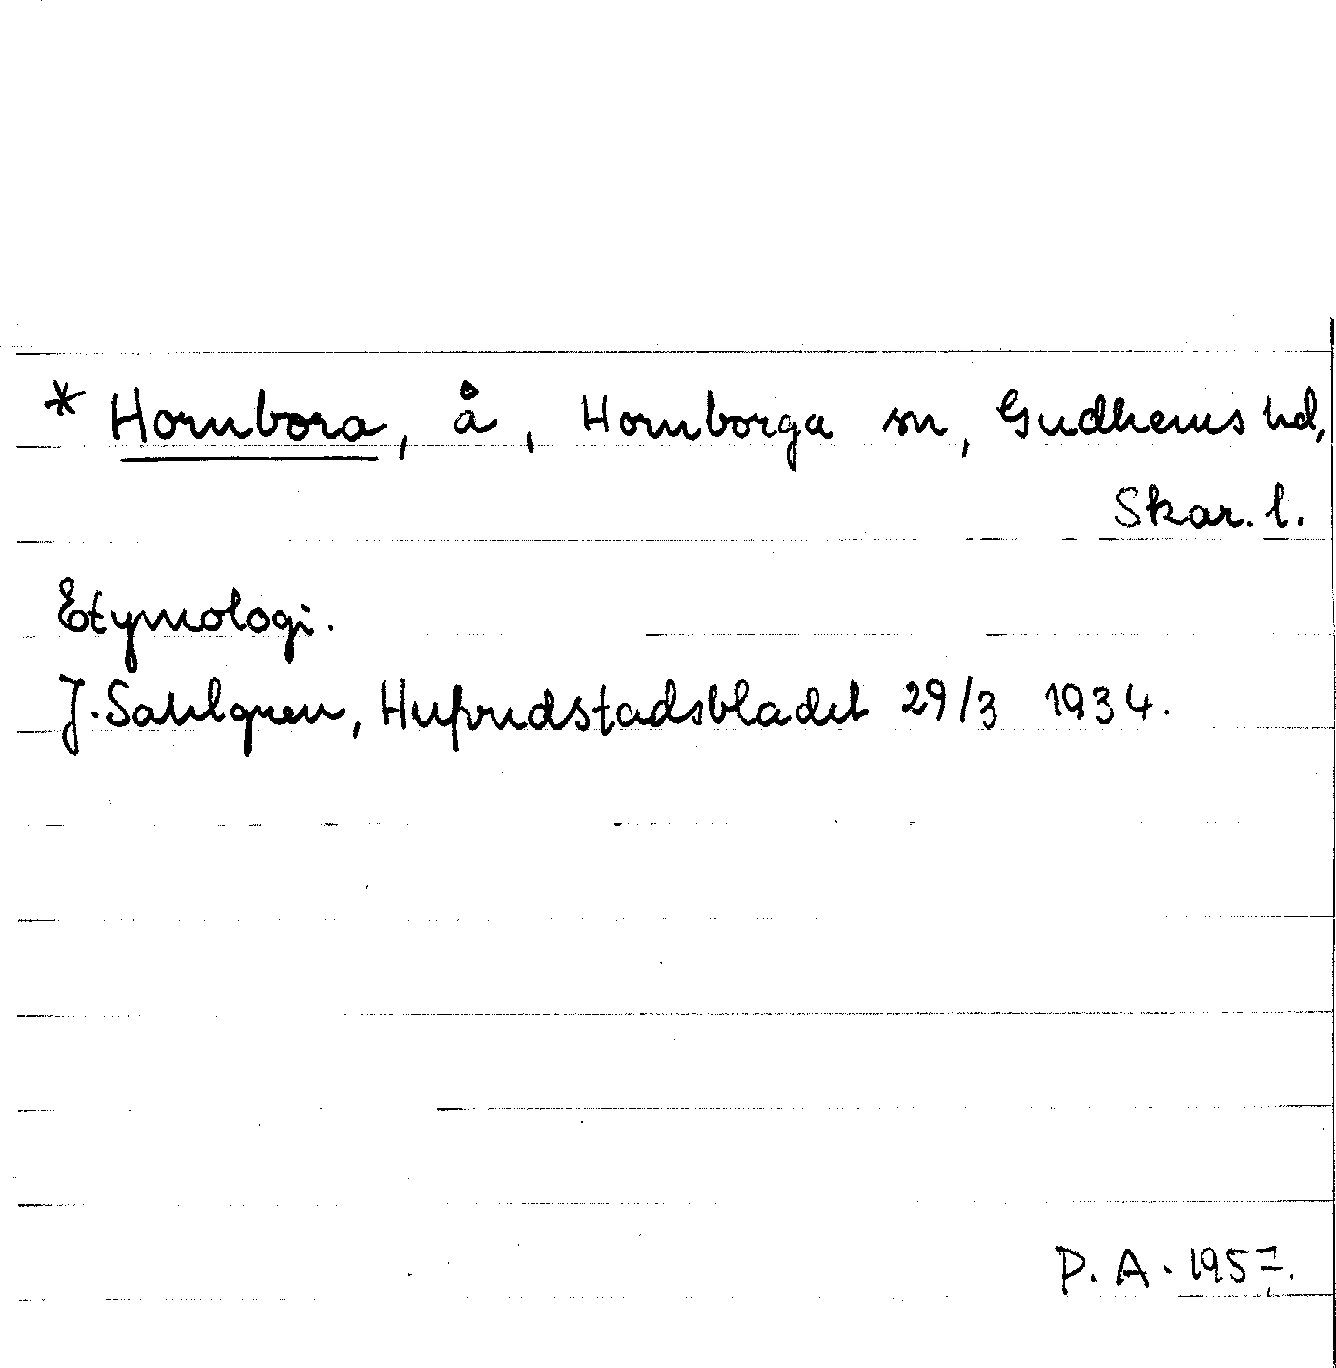 * Hornbora, å, Hornborga sn, Gudhems hd,
Skar. l.
Etymologi.
J. Sahlgren, Hufvudstadsbladet 29/3 1934.
P. A. 1957.